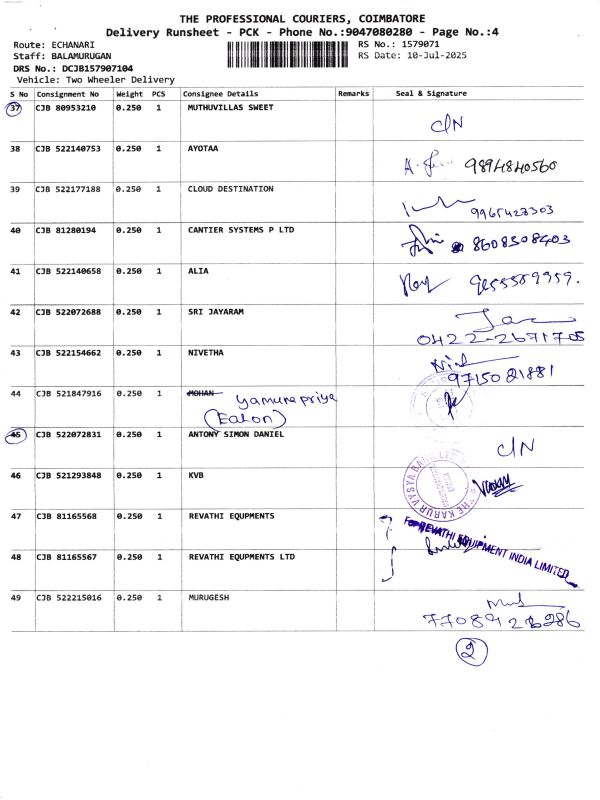 THE PROFESSIONAL COURIERS, COIMBATORE
Delivery Runsheet - PCK - Phone No.:9047080280 - Page No.:4
Route: ECHANARI
RS No.: 1579071
Staff: BALAMURUGAN
RS Date: 10-Jul-2025
DRS No.: DCJB157907104
Vehicle: Two Wheeler Delivery
S No Consignment No Weight PCS Consignee Details Remarks Seal & Signature
37 CJB 80953210 0.250 1 MUTHUVILLAS SWEET
C/N
38 CJB 522140753 0.250 1 AYOTAA
9894840560
39 CJB 522177188 0.250 1 CLOUD DESTINATION
9965427303
40 CJB 81280194 0.250 1 CANTIER SYSTEMS P LTD
8608308403
41 CJB 522140658 0.250 1 ALIA
42 CJB 522072688 0.250 1 SRI JAYARAM
0422-2671705
43 CJB 522154662 0.250 1 NIVETHA
9715021881
44 CJB 521847916 0.250 1 MOHAN yamunapriya
(Eaton)
45 CJB 522072831 0.250 1 ANTONY SIMON DANIEL
C/N
46 CJB 521293848 0.250 1 KVB
THE KARUR VYSYA BANK
47 CJB 81165568 0.250 1 REVATHI EQUPMENTS
For REVATHI EQUIPMENT INDIA LIMITED
48 CJB 81165567 0.250 1 REVATHI EQUPMENTS LTD
49 CJB 522215016 0.250 1 MURUGESH
2